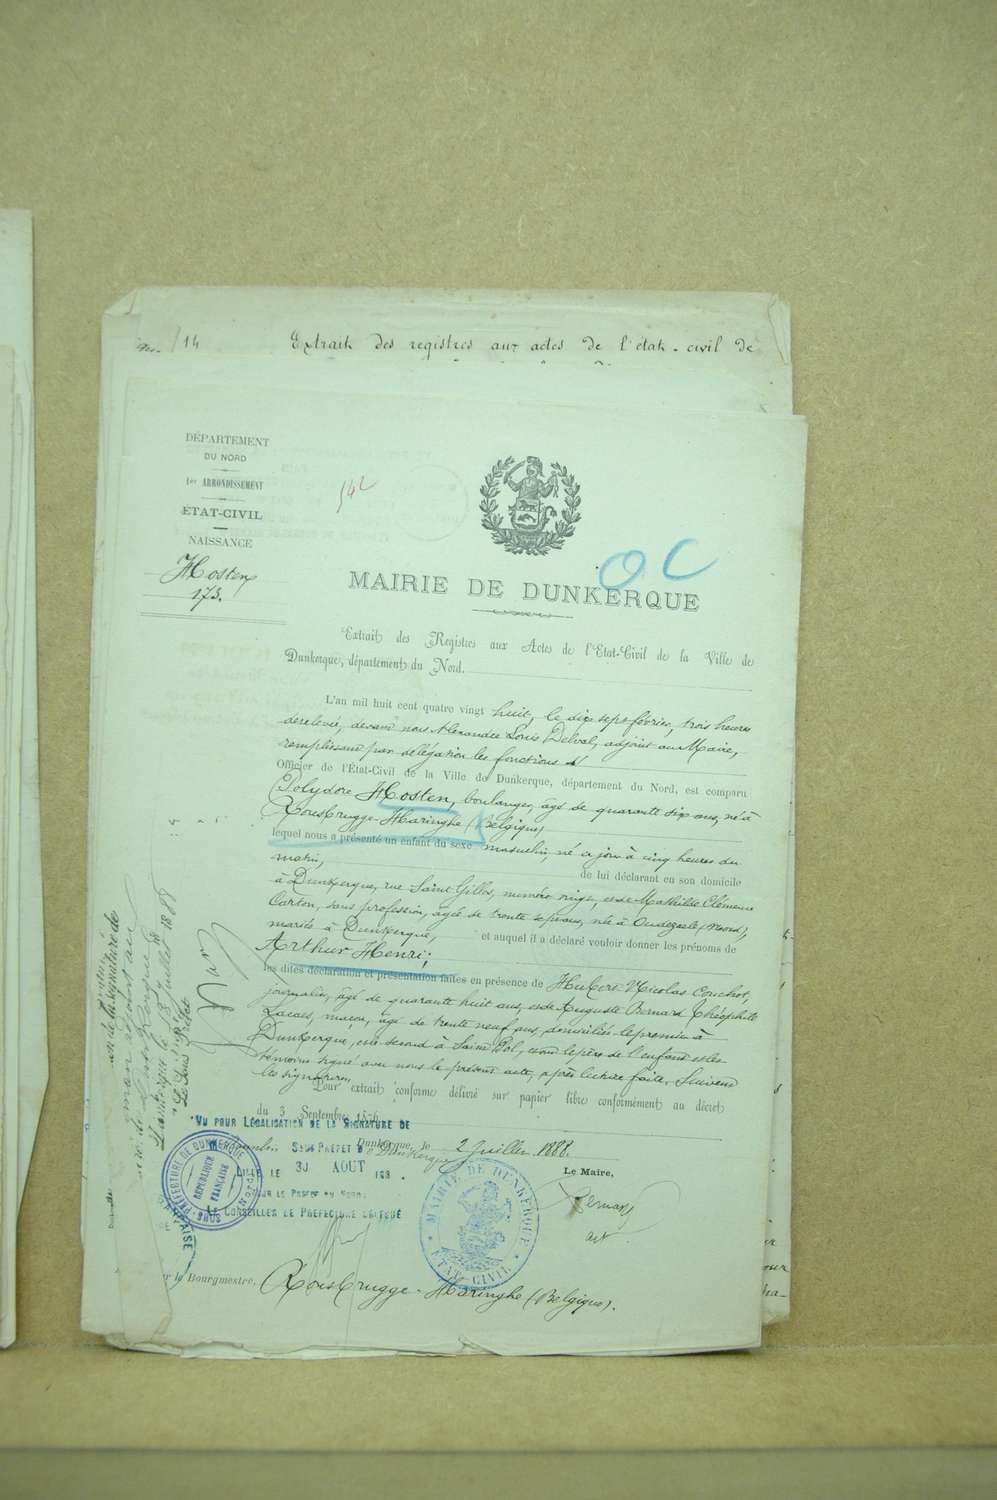 14
Extrait des registres aux actes de l'état-civil de
DÉPARTEMENT
DU NORD
1er ARRONDISSEMENT
ÉTAT-CIVIL
NAISSANCE
Hosten
173.
542
OC
MAIRIE DE DUNKERQUE
Extrait des Registres aux Actes de l'Etat-Civil de la Ville de
Dunkerque, département du Nord.
L'an mil huit cent quatre vingt huit, le dix sept février, trois heures
de relevée, devant nous Alexandre Louis Delval, adjoint au Maire,
remplissant par délégation les fonctions d'
Officier de l'État-Civil de la Ville de Dunkerque, département du Nord, est comparu
Polydore Hosten, boulanger, âgé de quarante six ans, né à
Rousbrugge-Haringhe (Belgique)
lequel nous a présenté un enfant du sexe masculin, né ce jour à cinq heures du
matin,
de lui déclarant en son domicile
à Dunkerque, rue Saint Gilles, numéro vingt, et de Mathilde Clémence
Carton, sans profession, âgée de trente sept ans, née à Oudezeele (Nord),
mariés à Dunkerque, et auquel il a déclaré vouloir donner les prénoms de
Arthur Henri;
les dites déclaration et présentation faites en présence de Hubert Nicolas Couchot,
journalier, âgé de quarante huit ans, et de Auguste Bernard Théophile
maçon, âgé de trente neuf ans, domiciliés le premier à
Dunkerque, et le second à Saint Pol, et ont le père de l'enfant et les
témoins signé avec nous le présent acte, après lecture faite, Suivent
les signatures,
Pour extrait conforme délivré sur papier libre conformément au décret
du 3 Septembre 1876
Dunkerque, le 2 Juillet 1888.
Le Maire,
VU POUR LÉGALISATION DE LA SIGNATURE DE
SOUS PRÉFET D
Dunkerque
LE 30 AOUT 188
POUR LE PRÉFET DU NORD
LE CONSEILLER DE PRÉFECTURE DÉLÉGUÉ
SOUS-PRÉFECTURE DE DUNKERQUE
RÉPUBLIQUE
FRANÇAISE
MAIRIE DE DUNKERQUE
ETAT-CIVIL
Dunkerque le
Juillet 1888
Le Sous Préfet
le Bourgmestre, Rousbrugge-Haringhe (Belgique).